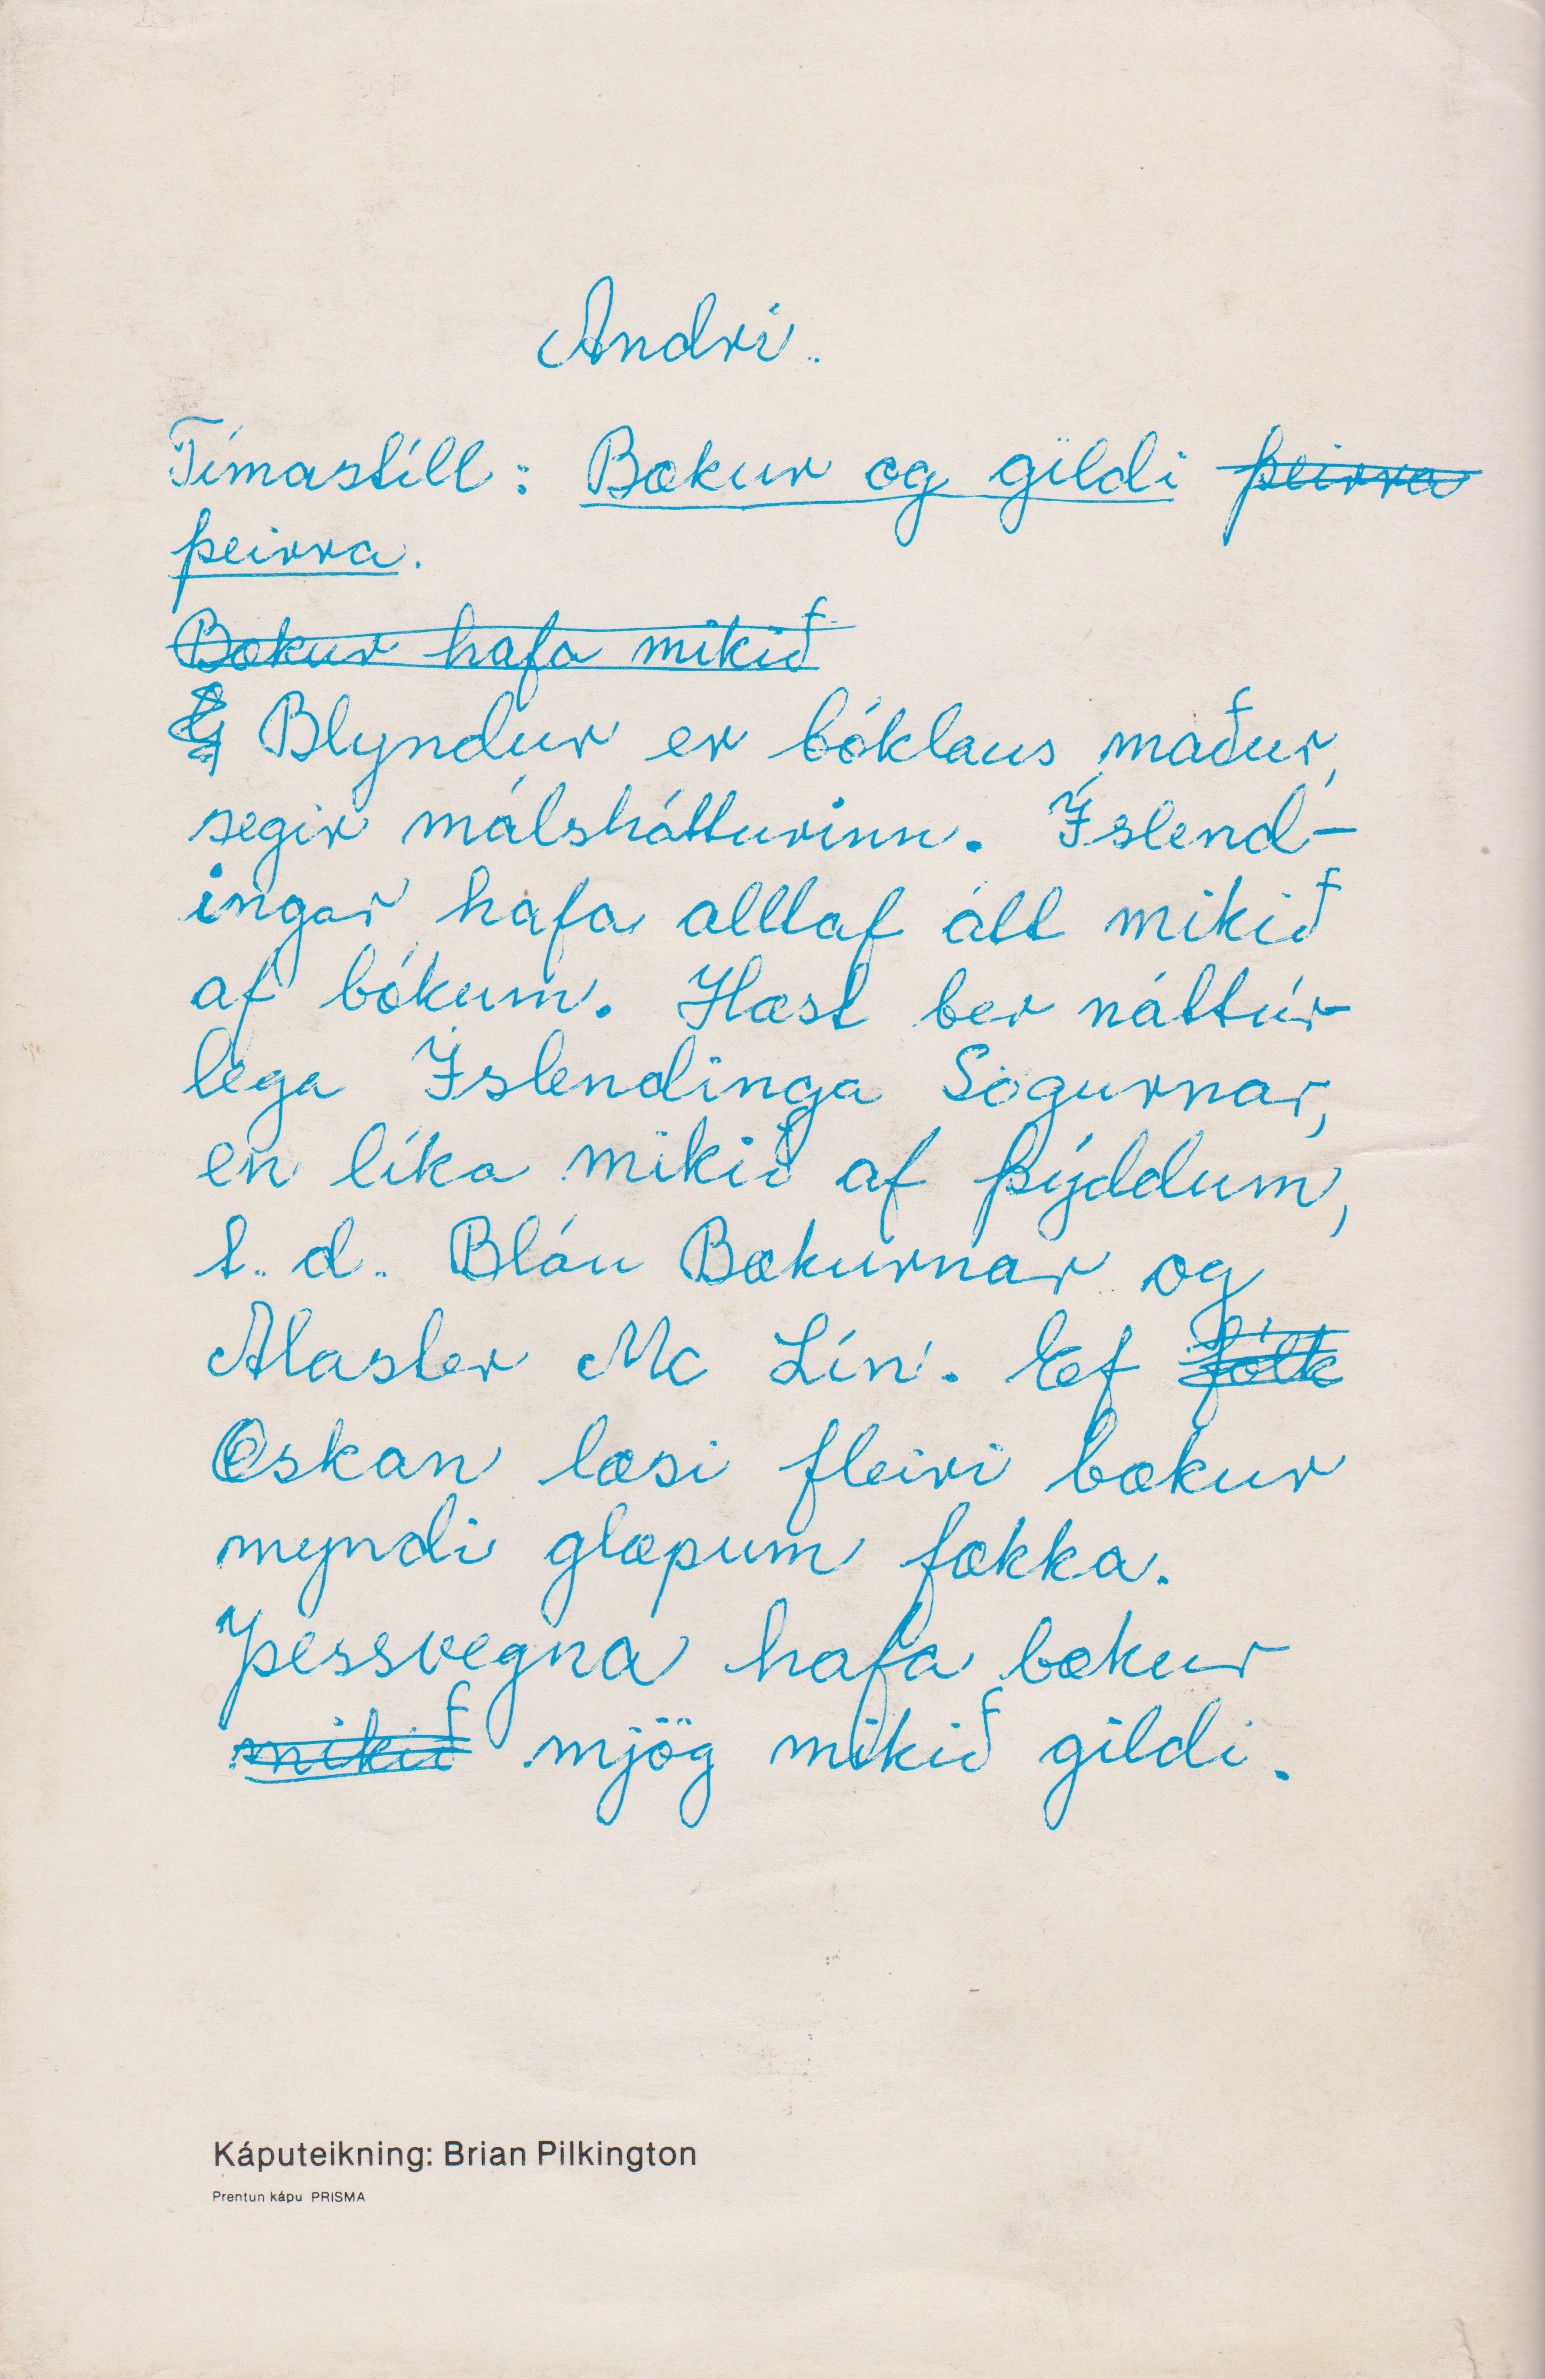 Andri.
Tímastíll: Bækur og gildi þeirra
þeirra.
Bækur hafa mikið
Blyndur er bóklaus maður,
segir málshátturinn. Íslend-
ingar hafa alltaf átt mikið
af bókum. Hæst ber náttúr-
lega Íslendinga Sögurnar,
en líka mikið af þýddum,
t.d. Bláu Bækurnar og
Alaster Mc Lín. Ef fólk
Oskan læsi fleiri bækur
myndi glæpum fækka.
Þessvegna hafa bækur
mikið mjög mikið gildi.
Káputeikning: Brian Pilkington
Prentun kápu PRISMA